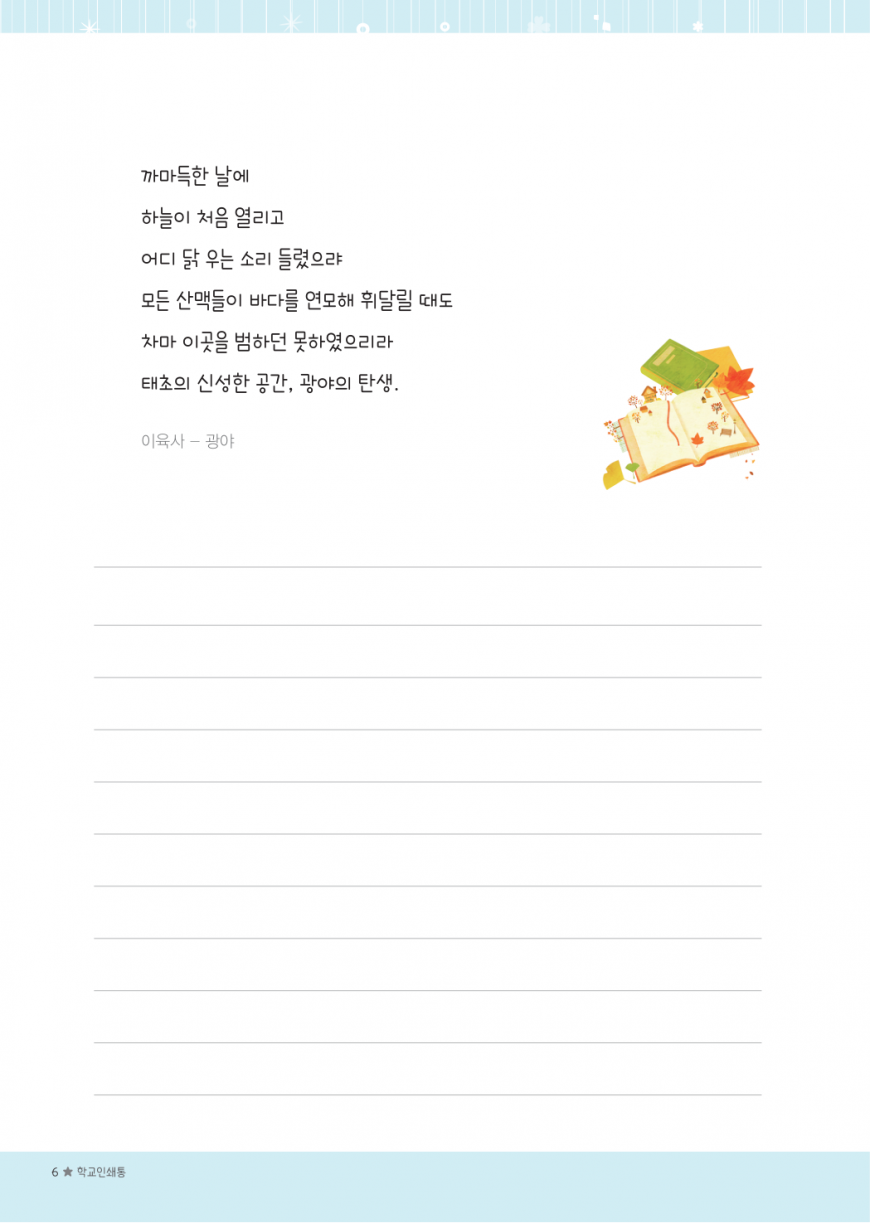 까마득한 날에
하늘이 처음 열리고
어디 닭 우는 소리 들렸으랴
모든 산맥들이 바다를 연모해 휘달릴 때도
차마 이곳을 범하던 못하였으리라
태초의 신성한 공간, 광야의 탄생.
이육사 – 광야
6 ★ 학교인쇄통